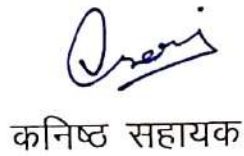 कनिष्ठ सहायक